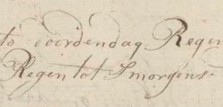 to voordendag Regen
Regen tot Smorgens